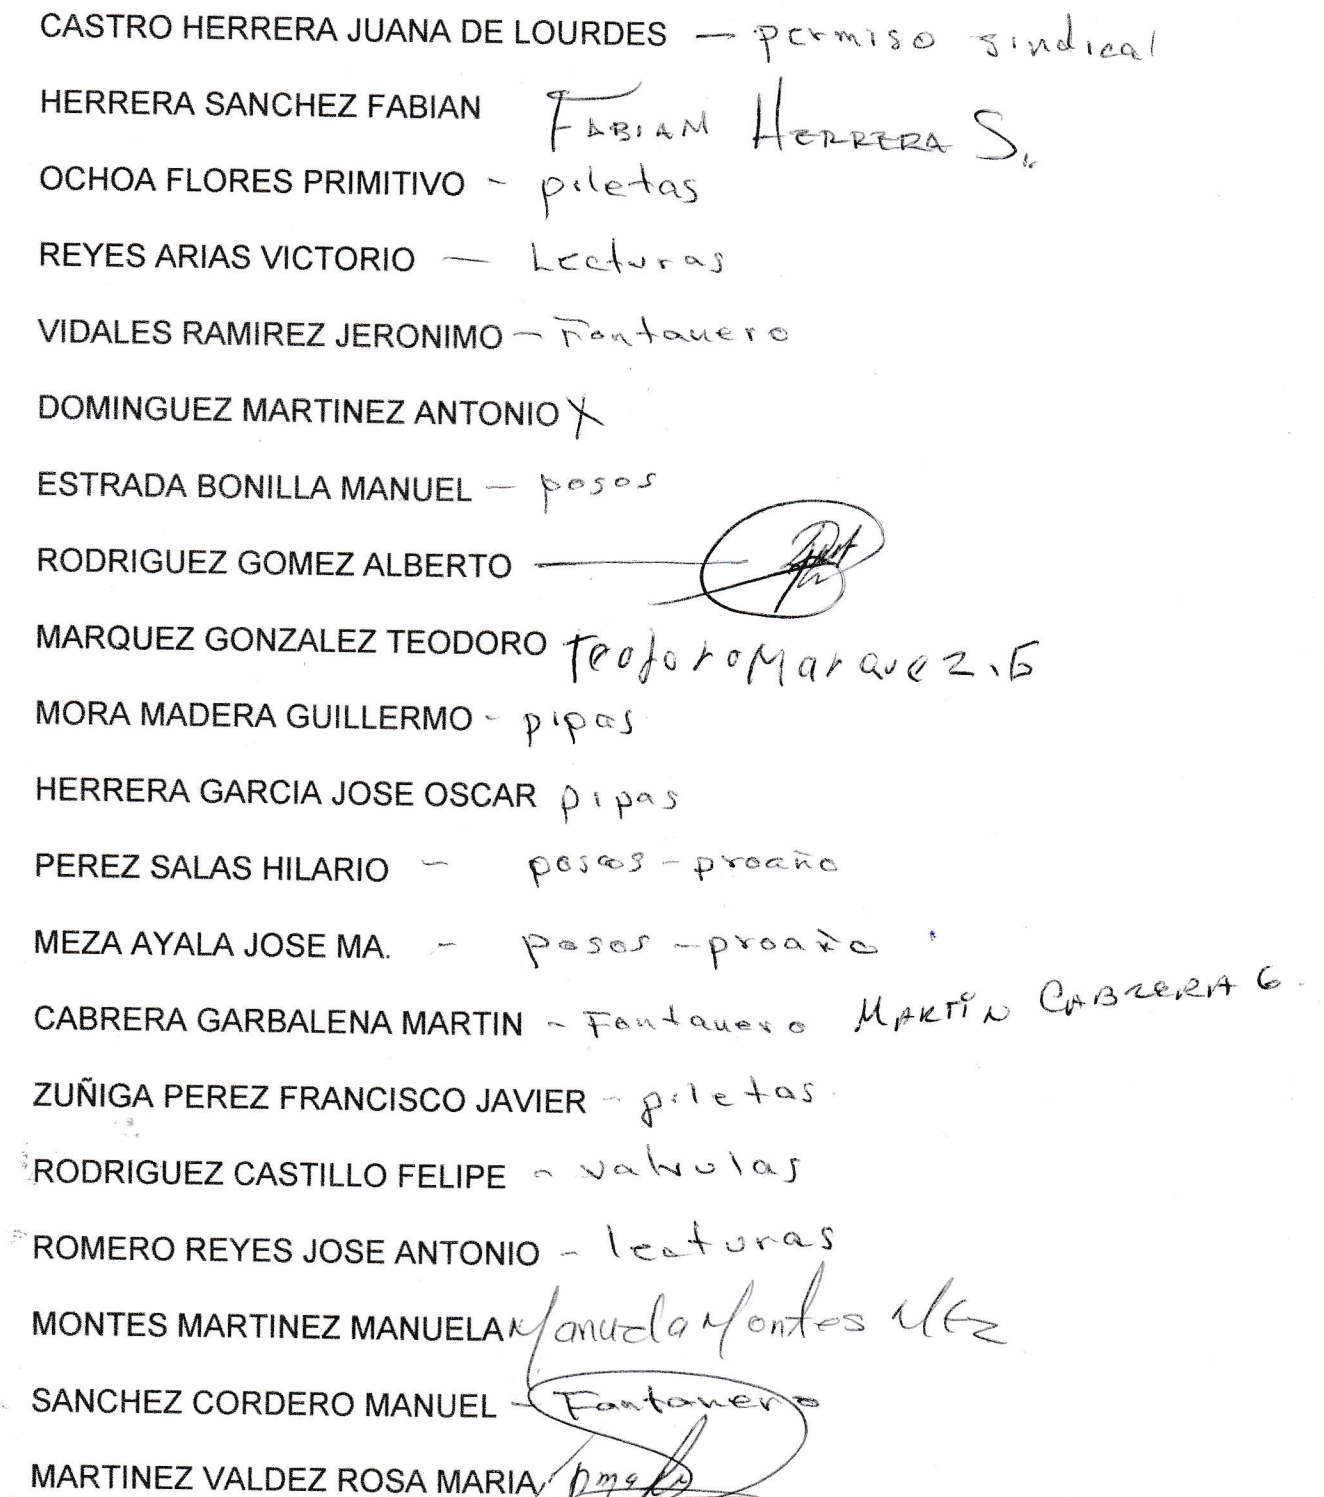 CASTRO HERRERA JUANA DE LOURDES — permiso sindical
HERRERA SANCHEZ FABIAN FABIAN HERRERA S.
OCHOA FLORES PRIMITIVO - piletas
REYES ARIAS VICTORIO — Lecturas
VIDALES RAMIREZ JERONIMO - Fontanero
DOMINGUEZ MARTINEZ ANTONIO X
ESTRADA BONILLA MANUEL - posos
RODRIGUEZ GOMEZ ALBERTO —
MARQUEZ GONZALEZ TEODORO Teodoro Marquez.G
MORA MADERA GUILLERMO - pipas
HERRERA GARCIA JOSE OSCAR pipas
PEREZ SALAS HILARIO - posos - proaño
MEZA AYALA JOSE MA. - posos - proaño
CABRERA GARBALENA MARTIN - Fontanero MARTIN CABRERA G.
ZUÑIGA PEREZ FRANCISCO JAVIER - piletas
RODRIGUEZ CASTILLO FELIPE - valvulas
ROMERO REYES JOSE ANTONIO - lecturas
MONTES MARTINEZ MANUELA Manuela Montes Mtz
SANCHEZ CORDERO MANUEL - Fontanero
MARTINEZ VALDEZ ROSA MARIA